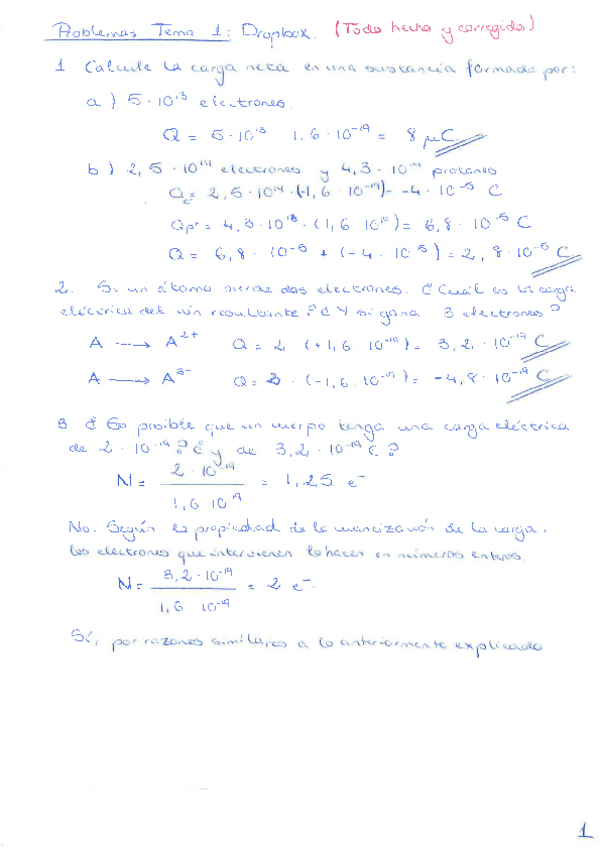 Problemas Tema 1: Dropbox. (Todo hecho y corregido)
1 Calcule la carga neta en una sustancia formada por:
a) 5·10¹³ electrones.
Q = 5·10¹³ 1,6·10⁻¹⁹ = 8 μC.
b) 2,5·10¹⁴ electrones y 4,3·10¹⁴ protones
Qe = 2,5·10¹⁴·(-1,6·10⁻¹⁹) = -4·10⁻⁵ C
Qp⁺ = 4,3·10 · (1,6 10 ) = 6,8·10⁻⁵ C
Q = 6,8·10⁻⁵ + (-4·10⁻⁵) = 2,8·10⁻⁵ C
2. Si un átomo pierde dos electrones. ¿Cuál es la carga
eléctrica del ión resultante? ¿Y si gana 3 electrones?
A ---→ A²⁺ Q = 2 (+1,6 10⁻¹⁹) = 3,2·10⁻¹⁹ C
A ⟶ A³⁻ Q = 3·(-1,6·10⁻¹⁹) = -4,8·10⁻¹⁹ C
3. ¿Es posible que un cuerpo tenga una carga eléctrica
de 2·10⁻¹⁹? ¿y de 3,2·10⁻¹⁹ C?
N = 2·10⁻¹⁹ / 1,6 10⁻¹⁹ = 1,25 e⁻
No. Según la propiedad de la cuantización de la carga,
los electrones que intervienen lo hacen en números enteros.
N = 3,2·10⁻¹⁹ / 1,6 10⁻¹⁹ = 2 e⁻.
Sí, por razones similares a lo anteriormente explicado
1